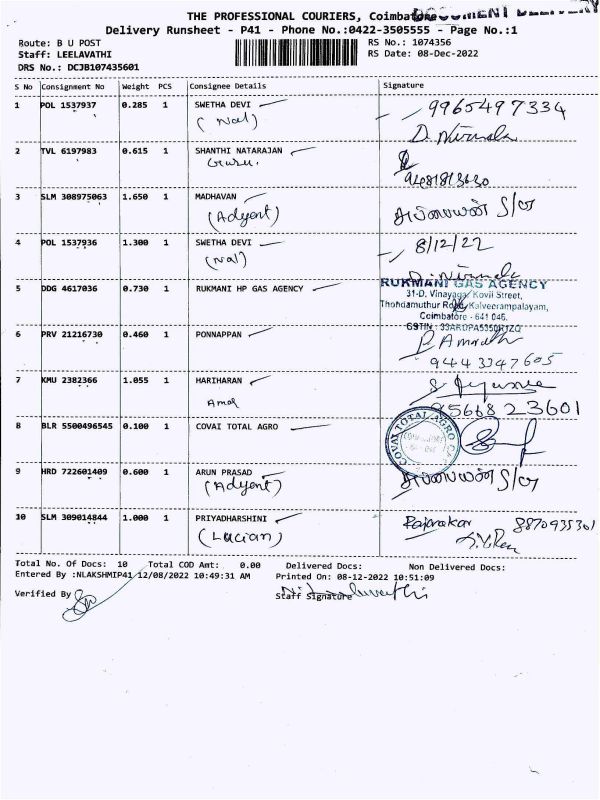 DOCUMENT DELIVERY
THE PROFESSIONAL COURIERS, Coimbatore
Delivery Runsheet - P41 - Phone No.:0422-3505555 - Page No.:1
Route: B U POST RS No.: 1074356
Staff: LEELAVATHI RS Date: 08-Dec-2022
DRS No.: DCJB107435601
S No Consignment No Weight PCS Consignee Details Signature
1 POL 1537937 0.285 1 SWETHA DEVI 9965497334
(Nal) D. Nirmala
2 TVL 6197983 0.615 1 SHANTHI NATARAJAN
3 SLM 308975063 1.650 1 MADHAVAN
(Adyent) S/o
4 POL 1537936 1.300 1 SWETHA DEVI 8/12/22
(Nal) D. Nirmala
5 DDG 4617036 0.730 1 RUKMANI HP GAS AGENCY RUKMANI GAS AGENCY
31-D, Vinayaga Kovil Street,
Thondamuthur Road, Kalveerampalayam,
Coimbatore - 641 046.
6 PRV 21216730 0.460 1 PONNAPPAN
9443347605
7 KMU 2382366 1.055 1 HARIHARAN
Amal 9566823601
8 BLR 5500496545 0.100 1 COVAI TOTAL AGRO COVAI TOTAL AGRO
9 HRD 722601409 0.600 1 ARUN PRASAD
(Adyent) S/o
10 SLM 309014844 1.000 1 PRIYADHARSHINI 8870935301
(Lucian)
Total No. Of Docs: 10 Total COD Amt: 0.00 Delivered Docs: Non Delivered Docs:
Entered By :NLAKSHMIP41 12/08/2022 10:49:31 AM Printed On: 08-12-2022 10:51:09
Verified By Staff Signature